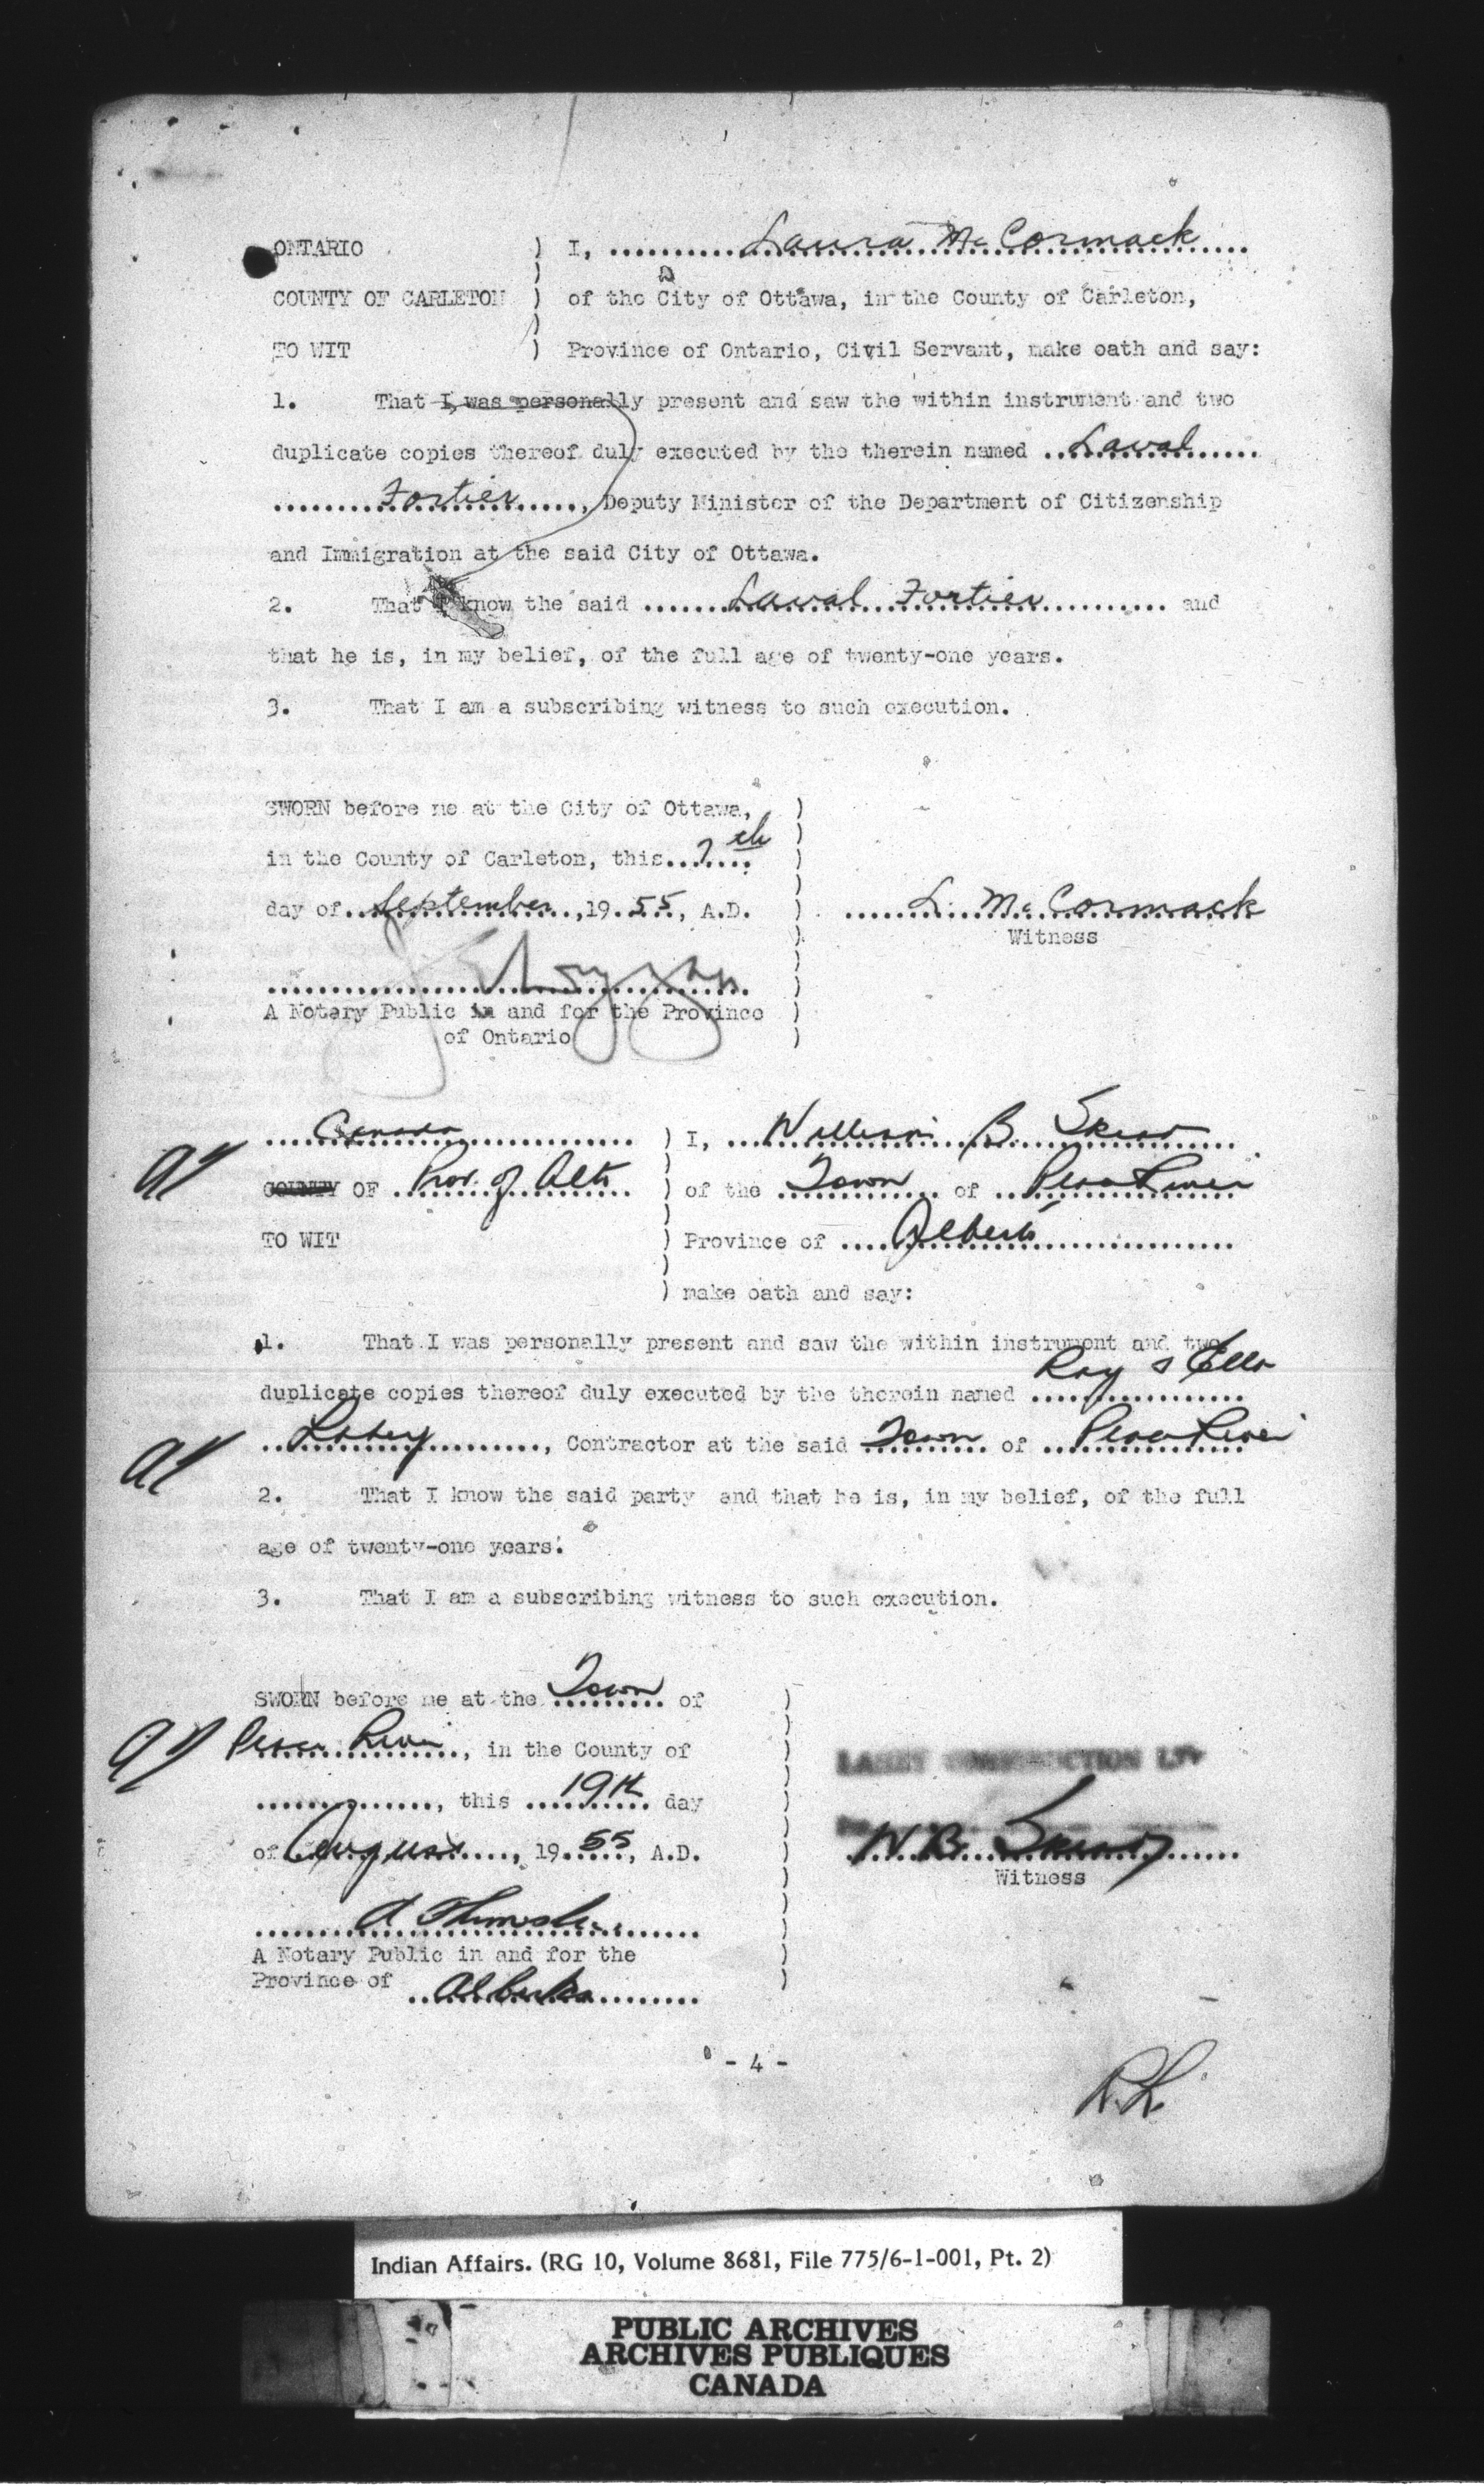 ONTARIO ) I, .......... Laura McCormack ....
COUNTY OF CARLETON ) of the City of Ottawa, in the County of Carleton,
TO WIT ) Province of Ontario, Civil Servant, make oath and say:
1. That I was personally present and saw the within instrument and two
duplicate copies thereof duly executed by the therein named .. Laval ......
........ Fortier ....., Deputy Minister of the Department of Citizenship
and Immigration at the said City of Ottawa.
2. That I know the said ...... Laval Fortier .......... and
that he is, in my belief, of the full age of twenty-one years.
3. That I am a subscribing witness to such execution.
SWORN before me at the City of Ottawa, )
in the County of Carleton, this... 7th )
day of.. September ..,19.55., A.D. ) ...... L. McCormack
Witness
A Notary Public in and for the Province )
of Ontario )
.... Canada .............. ) I, ... William B. ....
COUNTY OF .. Prov. of Alta .. ) of the .. Town .. of .. Peace River
TO WIT ) Province of .... Alberta ..............
) make oath and say:
1. That I was personally present and saw the within instrument and two
duplicate copies thereof duly executed by the therein named Roy & Ella
.. Lahey ........., Contractor at the said Town .. of .. Peace River
2. That I know the said party and that he is, in my belief, of the full
age of twenty-one years.
3. That I am a subscribing witness to such execution.
SWORN before me at the Town .. of )
Peace River ., in the County of )
.............., this .. 19th .. day )
of August ...., 19.55., A.D. )
LAHEY CONSTRUCTION LTD
W.B.
Witness
A Notary Public in and for the
Province of .. Alberta ........
- 4 -
R.L.
Indian Affairs. (RG 10, Volume 8681, File 775/6-1-001, Pt. 2)
PUBLIC ARCHIVES
ARCHIVES PUBLIQUES
CANADA